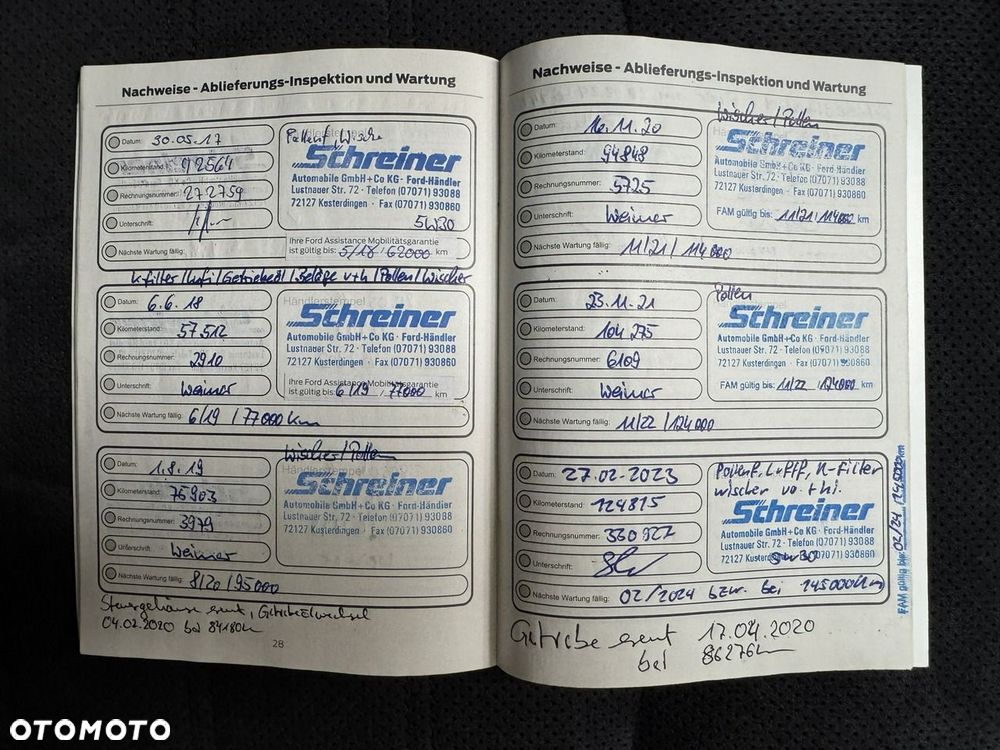 Nachweise - Ablieferungs-Inspektion und Wartung
Datum: 30.05.17
Pollenf./Wische
Kilometerstand: 42564
Schreiner
Automobile GmbH+Co KG · Ford-Händler
Lustnauer Str. 72 · Telefon (07071) 93088
72127 Kusterdingen · Fax (07071) 930860
Rechnungsnummer: 272759
5W30
Unterschrift:
Nächste Wartung fällig:
Ihre Ford Assistance Mobilitätsgarantie
ist gültig bis: 5/18 / 62000 km
K-Filter/Lufi/Getriebeöl/Beläge v+h/Pollen/Wischer
Datum: 6.6.18
Händlerstempel
Kilometerstand: 57512
Schreiner
Automobile GmbH+Co KG · Ford-Händler
Lustnauer Str. 72 · Telefon (07071) 93088
72127 Kusterdingen · Fax (07071) 930860
Rechnungsnummer: 2910
Unterschrift: Weimer
Ihre Ford Assistance Mobilitätsgarantie
ist gültig bis: 6/19 / 77000 km
Nächste Wartung fällig: 6/19 / 77000 km
Wischer/Pollen
Datum: 1.8.19
Händlerstempel
Kilometerstand: 75903
Schreiner
Automobile GmbH+Co KG · Ford-Händler
Lustnauer Str. 72 · Telefon (07071) 93088
72127 Kusterdingen · Fax (07071) 930860
Rechnungsnummer: 3979
Unterschrift: Weimer
Nächste Wartung fällig: 8/20 / 95000
Steuergehäuse ernt, Getriebeölwechsel
04.02.2020 bei 84180km
28
Nachweise - Ablieferungs-Inspektion und Wartung
Wischer/Pollen
Datum: 16.11.20
Kilometerstand: 94848
Schreiner
Automobile GmbH+Co KG · Ford-Händler
Lustnauer Str. 72 · Telefon (07071) 93088
72127 Kusterdingen · Fax (07071) 930860
Rechnungsnummer: 5725
Unterschrift: Weimer
FAM gültig bis: 11/21 / 114000 km
Nächste Wartung fällig: 11/21 / 114000
Pollen
Datum: 23.11.21
Händlerstempel
Kilometerstand: 104275
Schreiner
Automobile GmbH+Co KG · Ford-Händler
Lustnauer Str. 72 · Telefon (07071) 93088
72127 Kusterdingen · Fax (07071) 930860
Rechnungsnummer: 6109
Unterschrift: Weimer
FAM gültig bis: 11/22 / 124000 km
Nächste Wartung fällig: 11/22 / 124000
Datum: 27.02.2023
Pollenf, Luftf, K-Filter
wischer vo + hi.
Kilometerstand: 124815
Schreiner
Automobile GmbH+Co KG · Ford-Händler
Lustnauer Str. 72 · Telefon (07071) 93088
72127 Kusterdingen · Fax (07071) 930860
Rechnungsnummer: 330827
5W30
Unterschrift:
Nächste Wartung fällig: 02/2024 bzw. bei 145000km
FAM gültig bis: 02/24 / 145000 km
Getriebe ernt 17.04.2020
bei 86276km
OTOMOTO